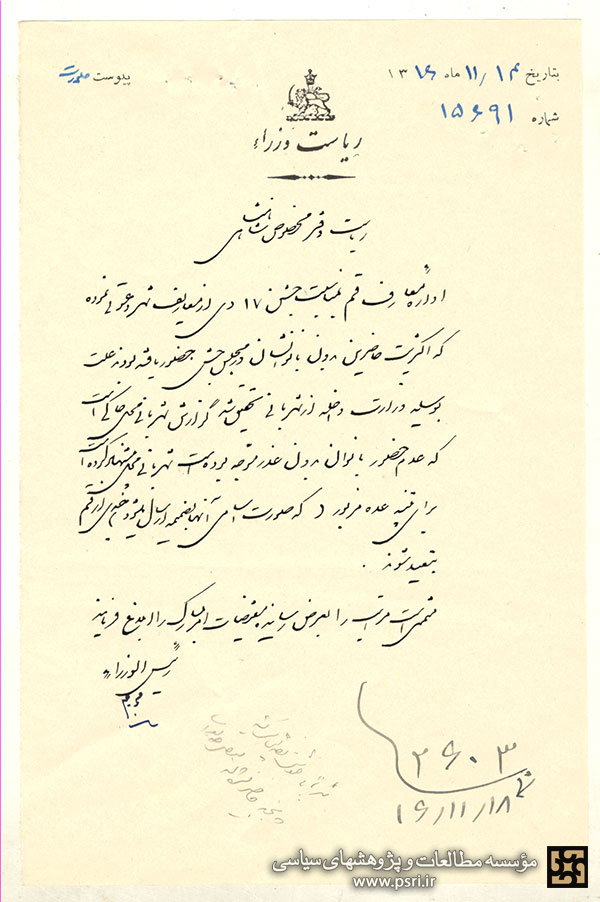 بتاریخ ۱۴ / ۱۱ ماه ۱۳۱۶
شماره ۱۵۶۹۱
پیوست
ریاست وزراء
ریاست دفتر مخصوص شاهنشاهی
اداره معارف قم بمناسبت جشن ۱۷ دی از معاریف شهر دعوتی نموده
که اکثریت حاضرین بدون بانوانشان در مجلس جشن حضور یافته بودند علت
بوسیله وزارت داخله از شهربانی تحقیق شد گزارش شهربانی محل حاکی است
که عدم حضور بانوان بدون عذر موجه بوده است شهربانی محل پیشنهاد کرده است
برای تنبیه عده مزبور ( که صورت اسامی آنها بضمیمه ارسال میشود ) از قم
تبعید شوند .
متمنی است مراتب را بعرض رسانیده مقتضیات امر مبارک را ابلاغ فرمایند
رئیس الوزراء
۲۶۰۳
۱۶/۱۱/۱۸
مؤسسه مطالعات و پژوهشهای سیاسی
www.psri.ir